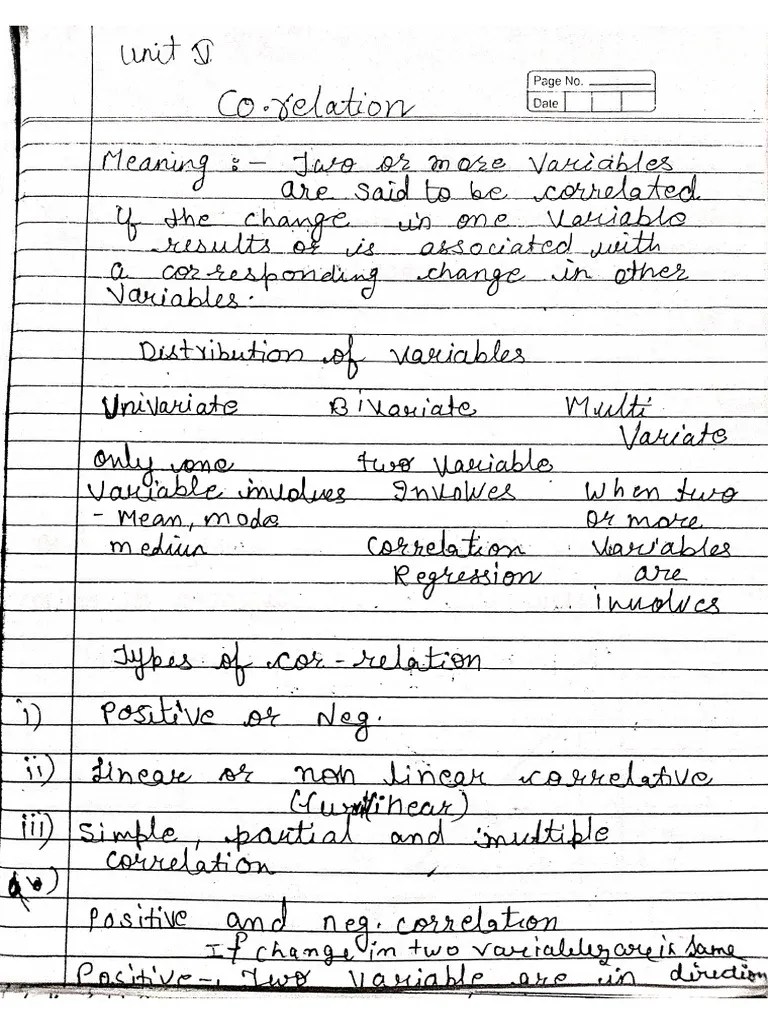 Unit V
Page No.
Co.relation
Date
Meaning :- Two or more Variables
are said to be correlated
if the change in one Variable
results or is associated with
a corresponding change in other
Variables.
Distribution of variables
Univariate Bivariate Multi
Variate
only one two Variable
Variable involves Involves When two
- Mean, mode or more
medium Correlation Variables
Regression are
involves
Types of cor-relation
i) Positive or Neg.
ii) Linear or non linear correlative
iii) Simple, partial and multiple
correlation
Positive and neg. correlation
If change in two variables are is same
Positive -, Two Variable are in direction